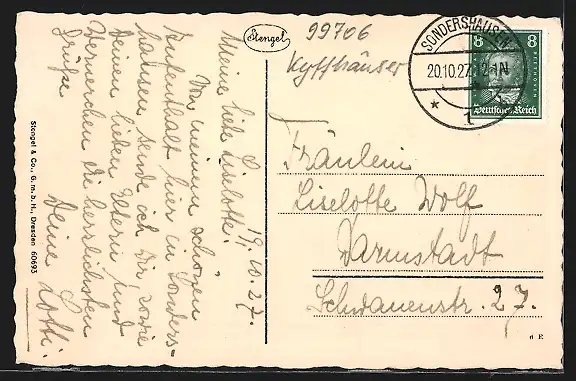 19. 10. 27.
Meine liebe Liselotte!
Von meinem schönen
Aufenthalt hier in Sonders-
hausen sende ich Dir, sowie
Deinen lieben Eltern und
die herzlichsten
Grüße
Deine Lotti.
Stengel
99706
Kyffhäuser
SONDERSHAUSEN
20.10.27. 12-1N
* 1
8 8
Deutsches Reich
Fräulein
Liselotte Wolf
Darmstadt
Schwanenstr. 27.
Stengel & Co., G. m. b. H., Dresden 60693
d E